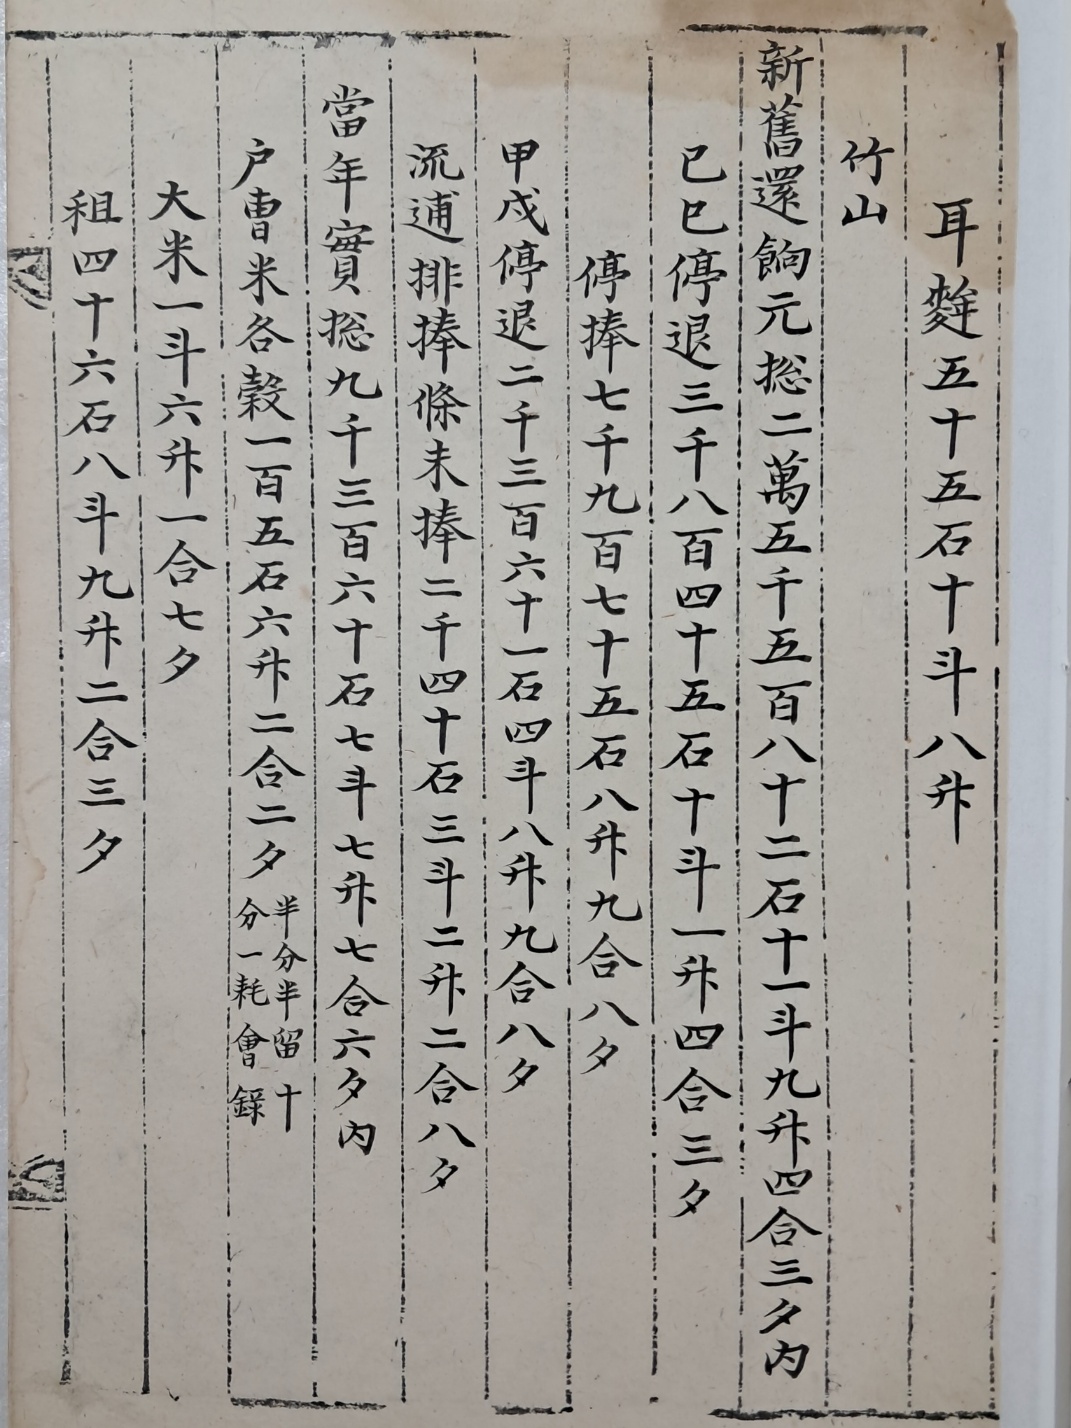 耳麰五十五石十斗八升
竹山
新舊還餉元摠二萬五千五百八十二石十一斗九升四合三夕內
己巳停退三千八百四十五石十斗一升四合三夕
停捧七千九百七十五石八升九合八夕
甲戌停退二千三百六十一石四斗八升九合八夕
流逋排捧條未捧二千四十石三斗二升二合八夕
當年實摠九千三百六十石七斗七升七合六夕內
户曹米各穀一百五石六升二合二夕
半分半留十
分一耗會錄
大米一斗六升一合七夕
租四十六石八斗九升二合三夕